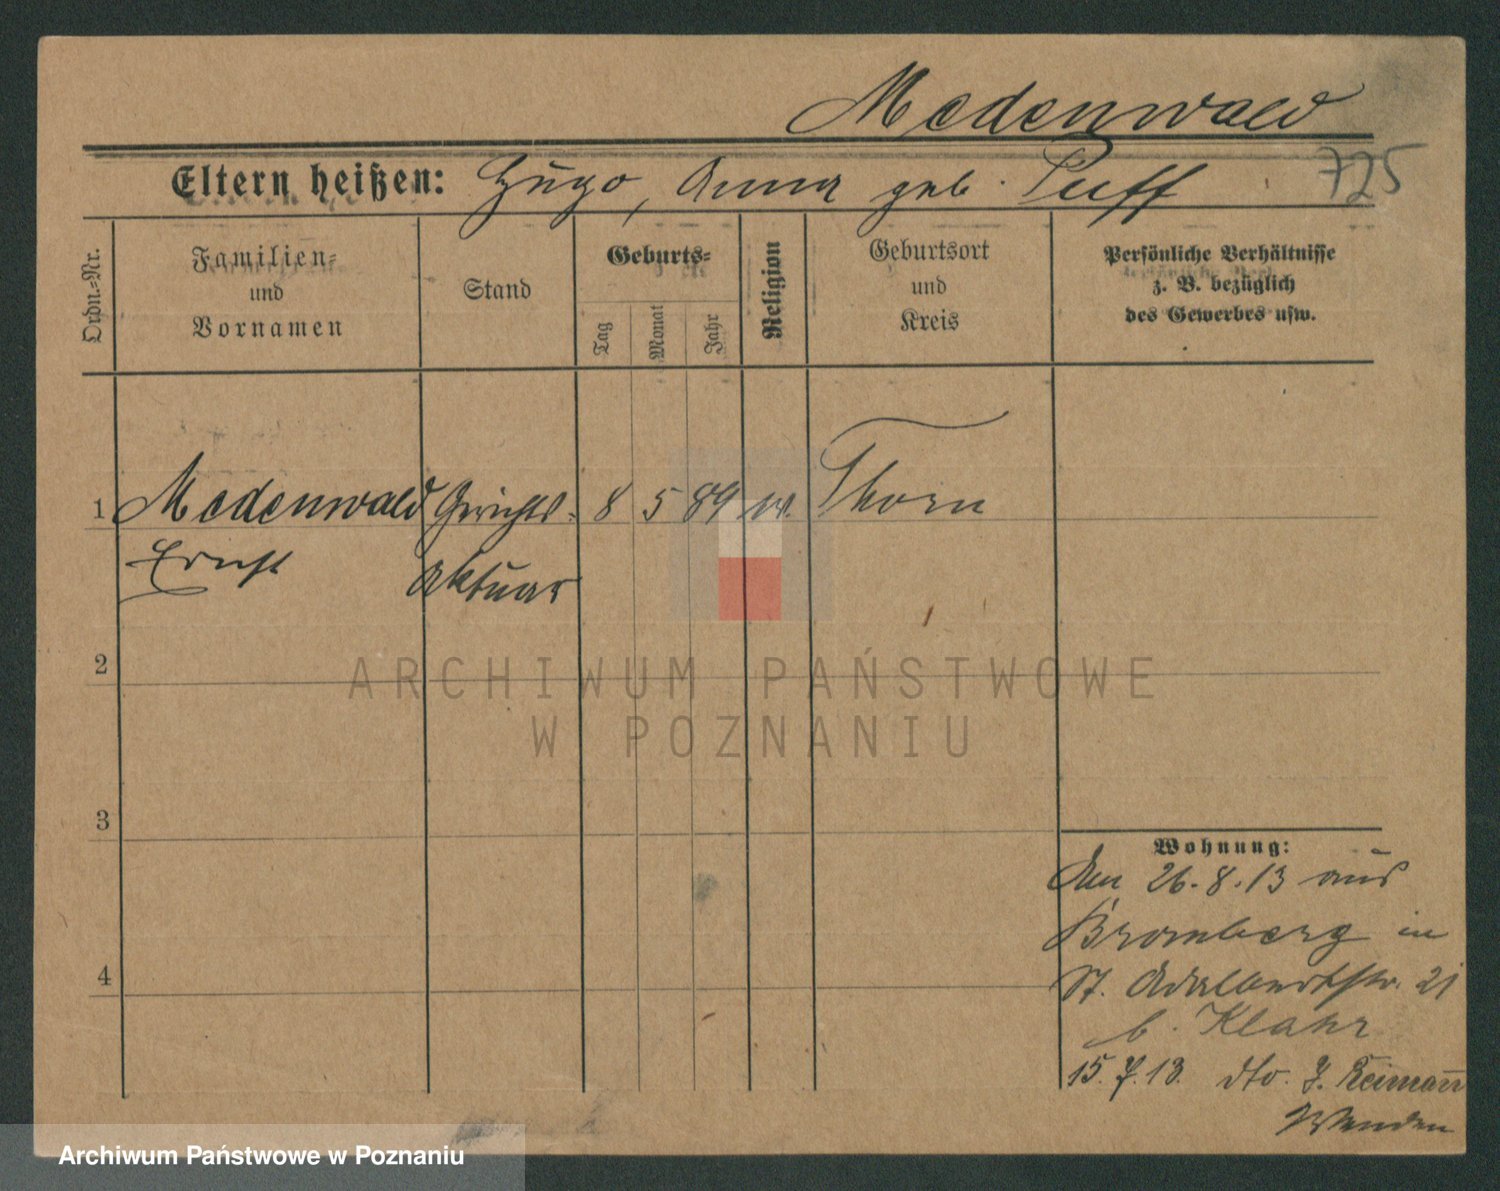 Medenwald
Eltern heißen: Hugo, Anna geb. Puff
725
Ordn.-Nr.
Familien-
und
Vornamen
Stand
Geburts-
Tag
Monat
Jahr
Religion
Geburtsort
und
Kreis
Persönliche Verhältnisse
z. B. bezüglich
des Gewerbes usw.
1 Medenwald Gerichts- 8 5 89 Thorn
Ernst Aktuar
2
3
4
Wohnung:
Am 26.8.13 aus
Bromberg in
St. Adalbertstr. 21
b. Klahr
15. 13. dto. Reimann
ARCHIWUM PAŃSTWOWE
W POZNANIU
Archiwum Państwowe w Poznaniu